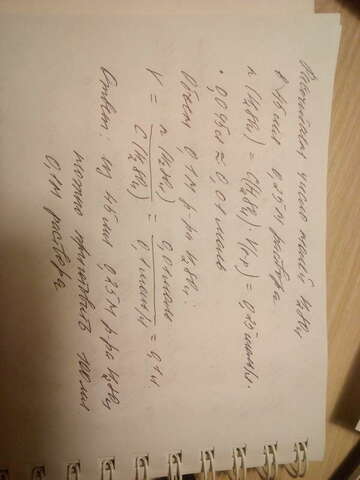 Рассчитаем число молей H₂SO₄
в 45 мл 0,25 М раствора.
n (H₂SO₄) = C(H₂SO₄) · V(р-р) = 0,25 моль/л ·
· 0,045 л ≈ 0,01 моль
Объем 0,1 М р-ра H₂SO₄:
V = n (H₂SO₄) / C (H₂SO₄) = 0,01 моль / 0,1 моль/л = 0,1 л.
Ответ: из 45 мл 0,25 М р-ра H₂SO₄
можно приготовить 100 мл
0,1 М раствора